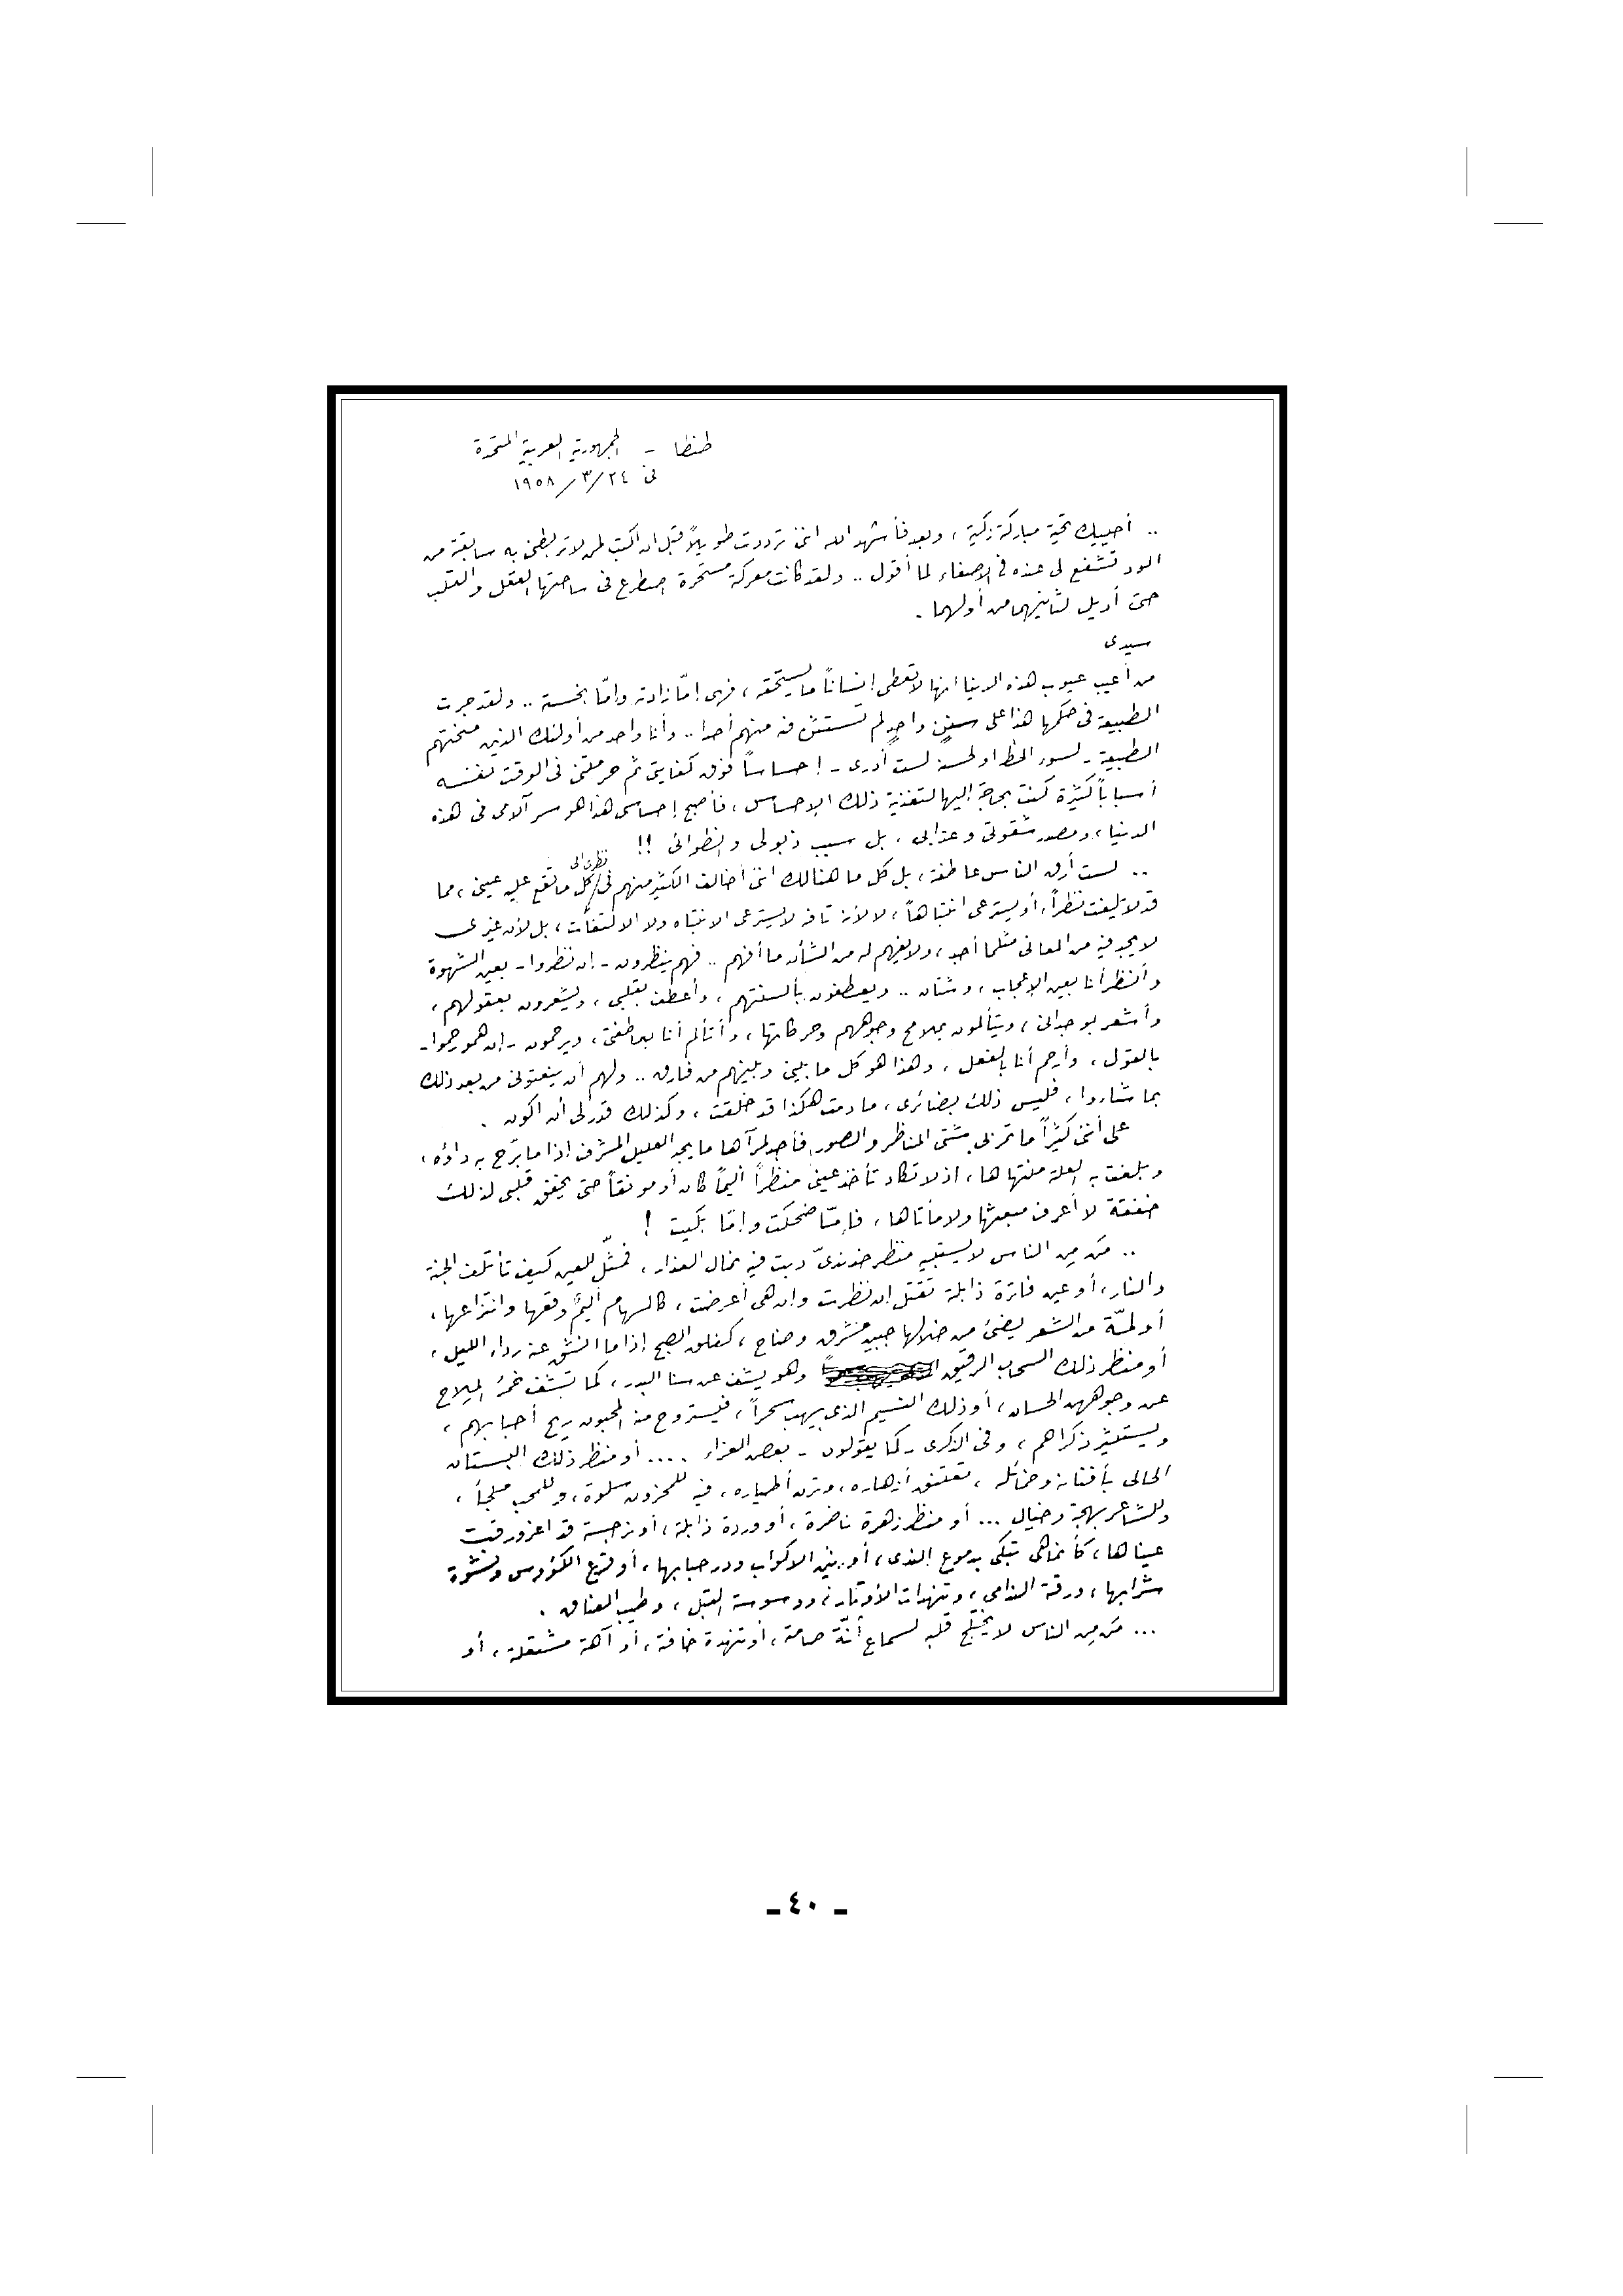 طنطا - الجمهورية العربية المتحدة
فى ٢٤/٣/١٩٥٨
.. أحييك تحية مباركة زكية ، وبعد فأشهد الله اننى ترددت طويلاً قبل ان اكتب لمن لا تربطنى به سابقة من
الود تشفع لى عنده فى الإصغاء لما أقول .. ولقد كانت معركة مستحرة اصطرع فى ساحتها العقل والقلب
حتى أديل لثانيهما من أولهما .
سيدى
من أعيب عيوب هذه الدنيا انها لا تعطى إنساناً ما يستحقه ، فهى إمّا زادته وامّا بخسته .. ولقد جرت
الطبيعة فى حكمها هذا على سننٍ واحدٍ لم تستثن فه منهم أحدا .. وأنا واحد من أولئك الذين منحتهم
الطبيعة - لسوء الحظ او لحسنه لست أدرى - إحساساً فوق كفايتى ثم حرمتنى فى الوقت نفسه
أسباباً كثيرة كنت بحاجة إليها لتغذية ذلك الإحساس ، فأصبح إحساسى هذا هو سر آلامى فى هذه
الدنيا ، ومصدر شقوتى وعذابى ، بل سبب ذبولى وانطوائى !!
.. لست أرق الناس عاطفة ، بل كل ما هنالك اننى أخالف الكثير منهم فى نظرتى الى كل ما تقع عليه عينى ، مما
قد لا يلفت نظراً ، أو يسترعى انتباهاً ، لا لأنه تافه لا يسترعى الانتباه ولا الالتفات ، بل لأن غيرى
لا يجد فيه من المعانى مثلما أجد ، ولا يفهم له من الشأن ما أفهم .. فهم ينظرون - إن نظروا - بعين الشهوة
وأنظر أنا بعين الإعجاب ، وشتان .. ويعطفون بألسنتهم ، وأعطف بقلبى ، ويشعرون بعقولهم ،
وأشعر بوجدانى ، ويتألمون بملامح وجوههم وحركاتها ، وأتألم أنا بعاطفتى ، ويرحمون - إن همو رحموا -
بالقول ، وأرحم أنا بالفعل ، وهذا هو كل ما بينى وبينهم من فارق .. ولهم أن ينعتونى من بعد ذلك
بما شاءوا ، فليس ذلك بضائرى ، ما دمت هكذا قد خلقت ، وكذلك قدر لى أن اكون .
على أننى كثيراً ما تمر بى شتى المناظر والصور فأجد لمرآها ما يجد العليل المشرف إذا ما برّح به داؤه ،
وبلغت به العلة منتهاها ، اذ لا تكاد تأخذ عينى منظراً أليماً كان أو مونقاً حتى يخفق قلبى لذلك
خفقة لا أعرف مبعثها ولا مأتاها ، فإمّا ضحكت وامّا بكيت !
.. مَن مِن الناس لا يستبيه منظر خد ندىّ دبت فيه نمال العذار ، فمثّل للعين كيف تأتلف الجنة
والنار ، أو عين فاترة ذابلة تقتل إن نظرت وان هى أعرضت ، كالسهام أليمٌ وقعها وانتزاعها ،
أو لمّة من الشعر يضئ من خلالها جبين مشرق وضاح ، كفلق الصبح إذا ما انشق عنه رداء الليل ،
أو منظر ذلك السحاب الرقيق وهو يشف عن سنا البدر ، كما تشف خمرُ الملاح
عن وجوههن الحسان ، أو ذلك النسيم الذى يهب سحراً ، فيستروح منه المحبون ريح أحبابهم ،
ويستثير ذكراهم ، وفى الذكرى - كما يقولون - بعض العزاء .... أو منظر ذلك البستان
الحالى بأفنانه وخمائله ، تعتنق أزهاره ، وترن أطياره ، فيه للمحزون سلوة ، وللمحب ملجأ ،
وللشاعر بهجة وخيال ... أو منظر زهرة ناضرة ، أو وردة ذابلة ، أو نرجسة قد اغرورقت
عيناها ، كأنما هى تبكى بدموع الندى ، أو رنين الاكواب ودر حبابها ، أو قرع الكؤوس ونشوة
شرابها ، ورقة الندامى ، وتنهدات الأوتار ، ووسوسة القبل ، وطيب العناق .
... مَن مِن الناس لا يختلج قلبه لسماع أنّة صامتة ، أو تنهدة خافتة ، أو آهة مشتعلة ، أو
- ٤٠ -